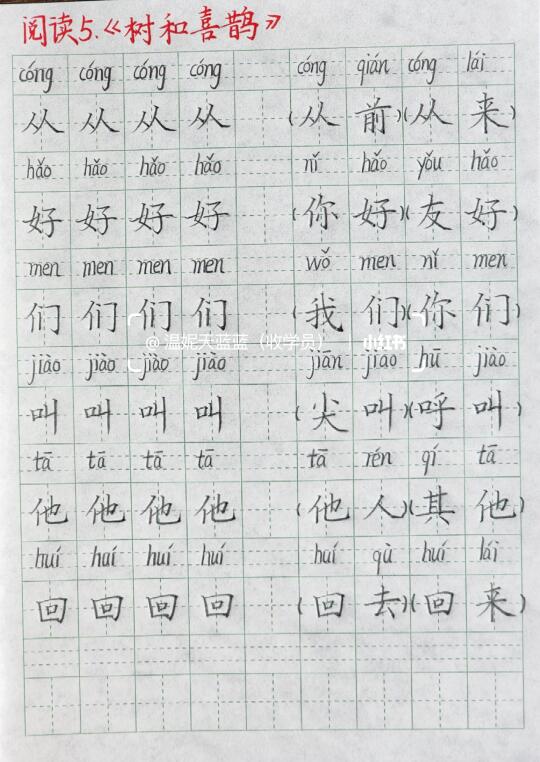 阅读5.《树和喜鹊》
cóng cóng cóng cóng cóng qián cóng lái
从 从 从 从 (从 前)(从 来)
hǎo hǎo hǎo hǎo nǐ hǎo yǒu hǎo
好 好 好 好 (你 好)(友 好)
men men men men wǒ men nǐ men
们 们 们 们 (我 们)(你 们)
@温妮天蓝蓝(收学员) 小红书
jiào jiào jiào jiào jiān jiào hū jiào
叫 叫 叫 叫 (尖 叫)(呼 叫)
tā tā tā tā tā rén qí tā
他 他 他 他 (他 人)(其 他)
huí huí huí huí huí qù huí lái
回 回 回 回 (回 去)(回 来)